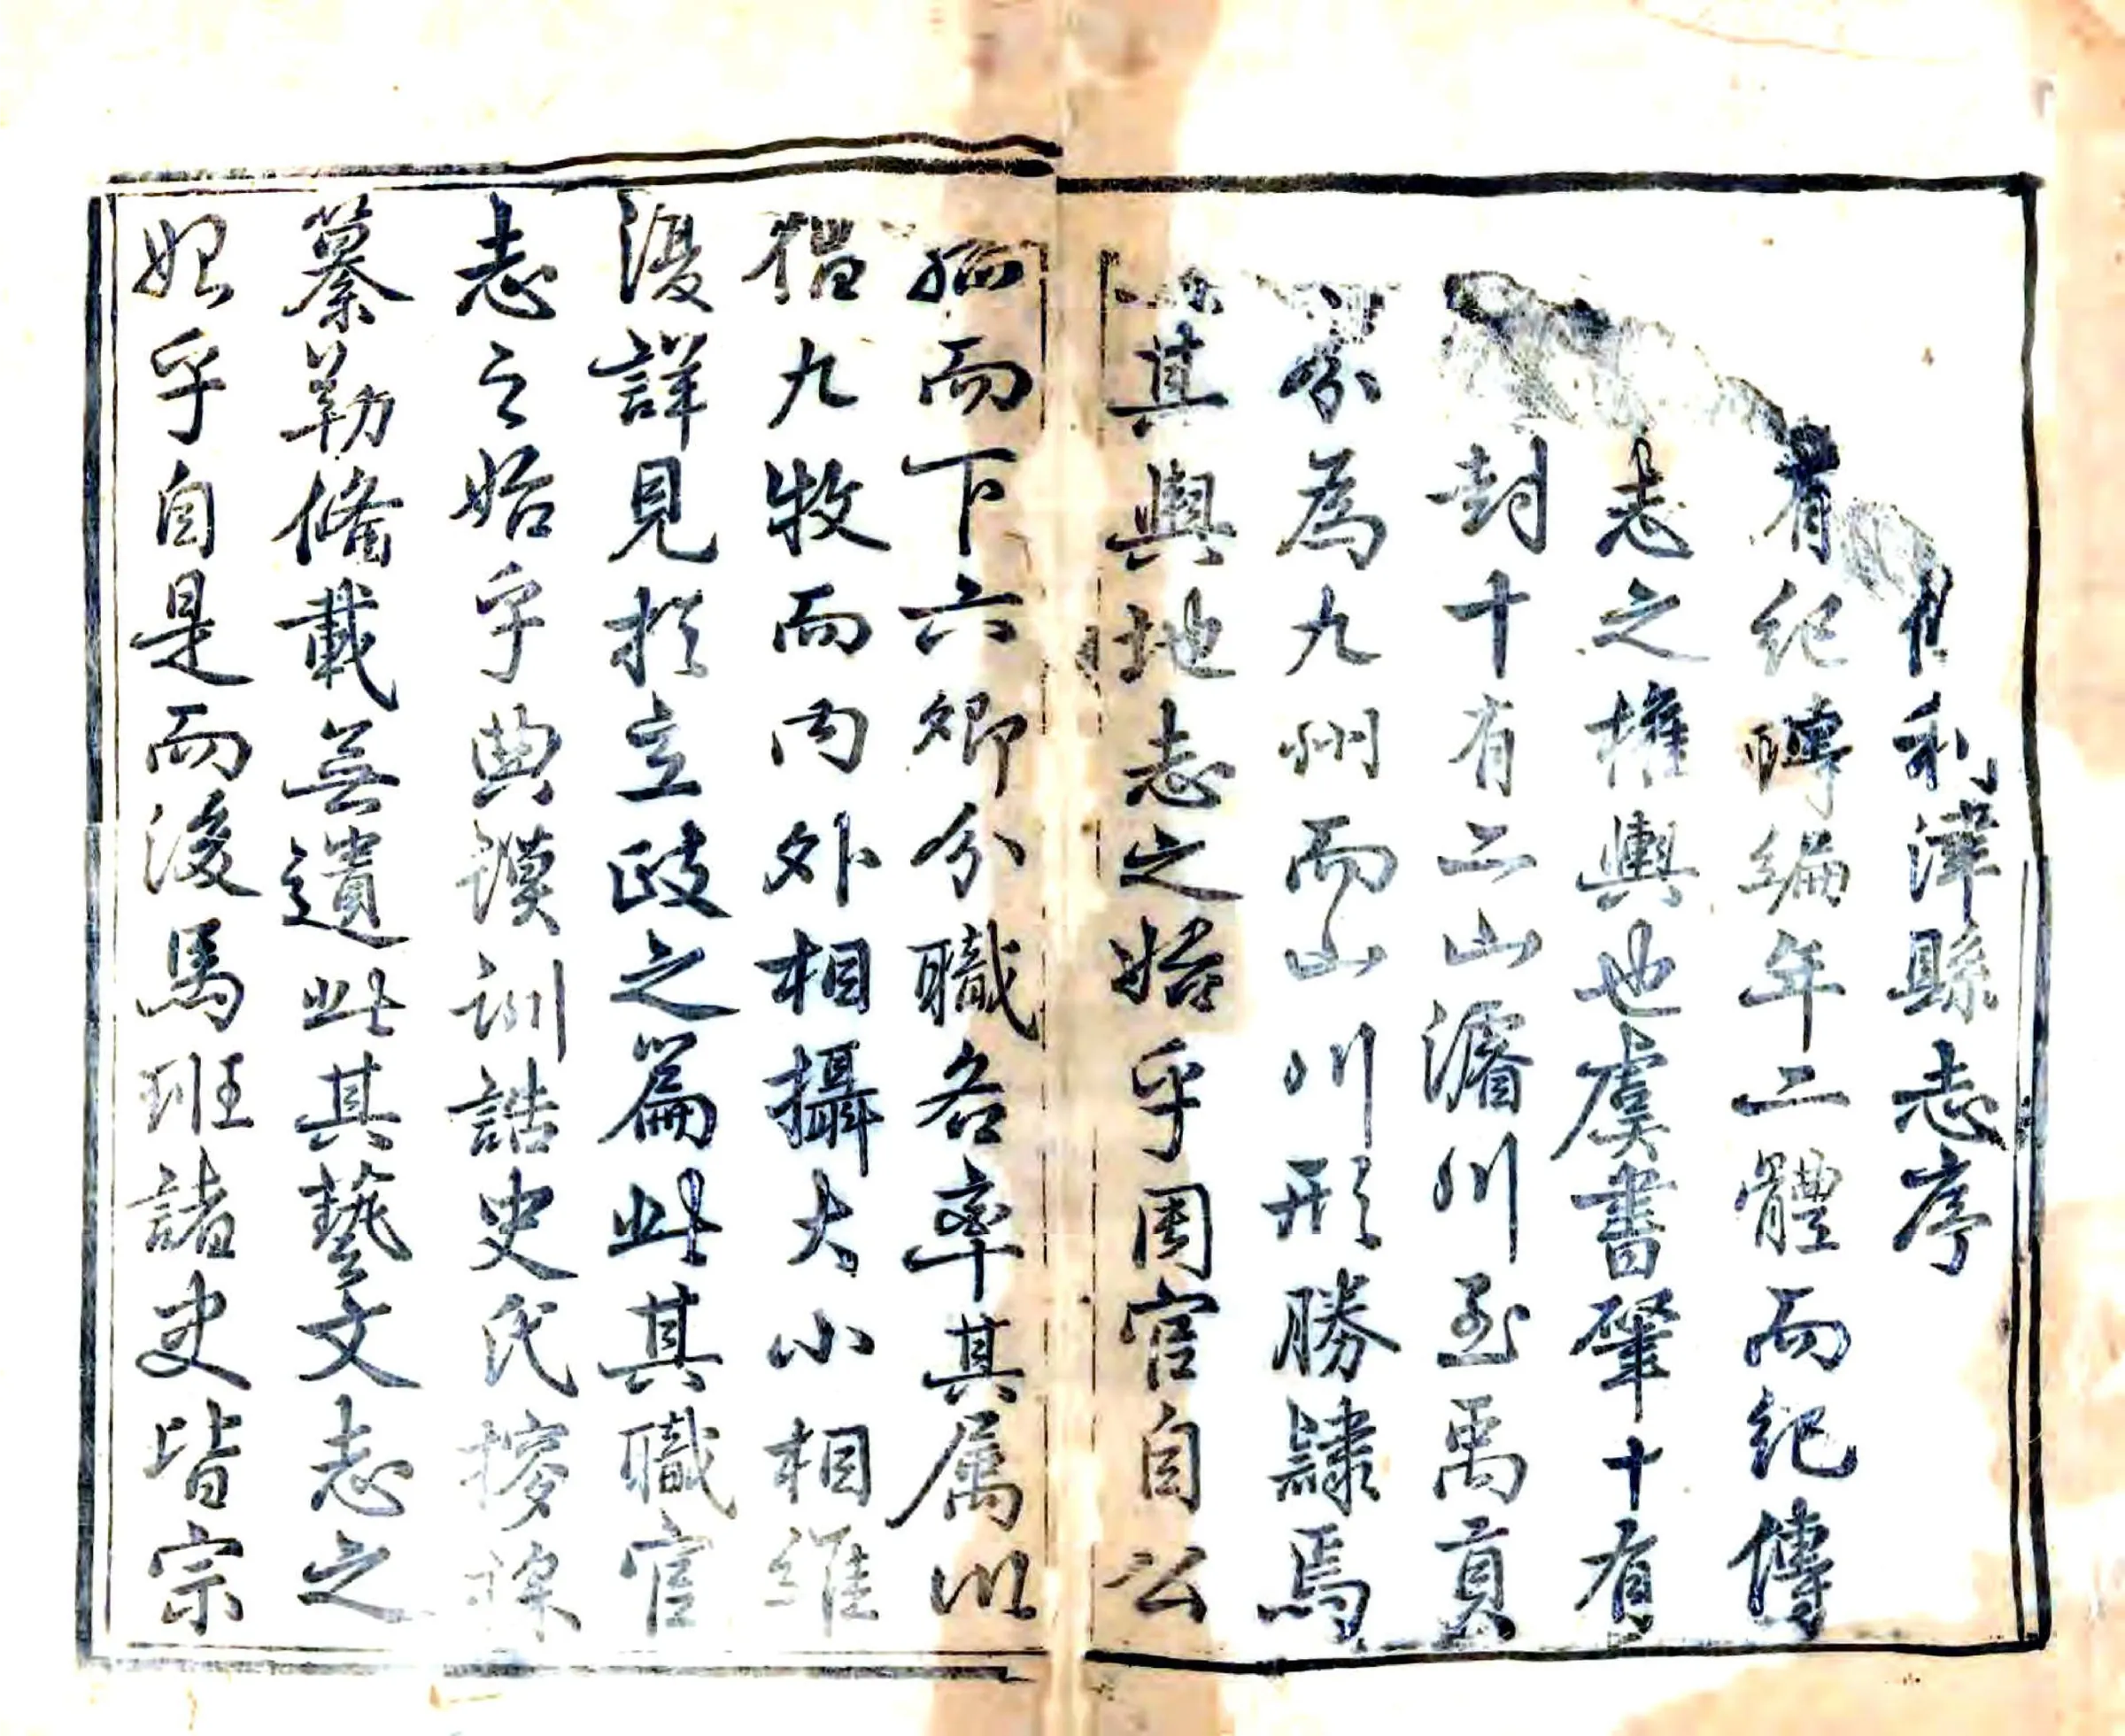 利津縣志序
有紀轉編年二體而紀傳
志之權輿也虞書肇十有
封十有二山濬川至禹貢
分為九州而山川形勝隸焉
其輿地志之始乎周官自公
孤而下六卿分職各率其属以
倡九牧而内外相攝大小相維
復詳見於立政之篇此其職官
志之始乎典謨訓誥史氏
纂勒脩載無遺此其藝文志之
始乎自是而後馬班諸史皆宗